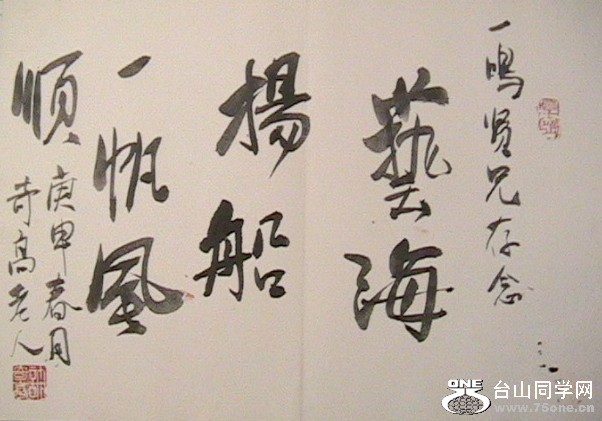 一鸣贤兄存念
藝海
揚船
一帆風
順
庚申春月
奇高老人
ONE
台山同学网
www.75one.cn